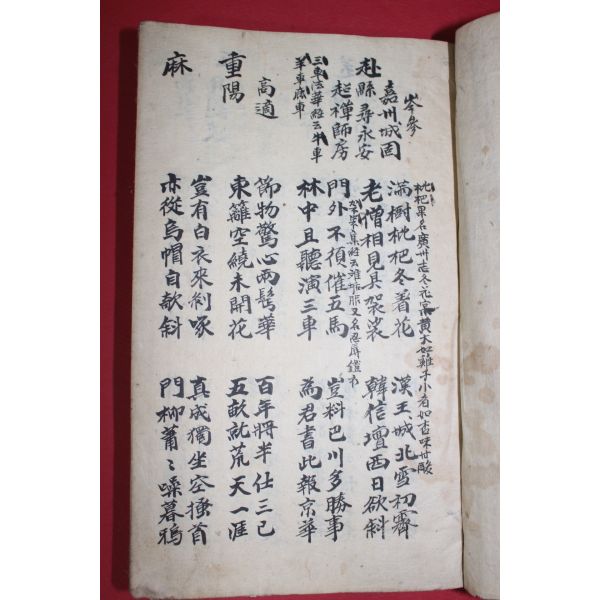 岑參
嘉州城固
赴縣尋永安
超禪師房
三車法華經云牛車
羊車鹿車
枇杷果名廣州志冬花實黃大如雞子小者如杏味甘酸
滿樹枇杷冬著花 漢王城北雪初霽
老僧相見具袈裟 韓信壇西日欲斜
云離塵服又名忍辱鎧
門外不須催五馬 豈料巴川多勝事
林中且聽演三車 為君書此報京華
高適
重陽
節物驚心兩鬢華 百年將半仕三已
東籬空繞未開花 五畝就荒天一涯
豈有白衣來剝啄 真成獨坐空搔首
亦從烏帽自欹斜 門柳蕭々噪暮鴉
麻